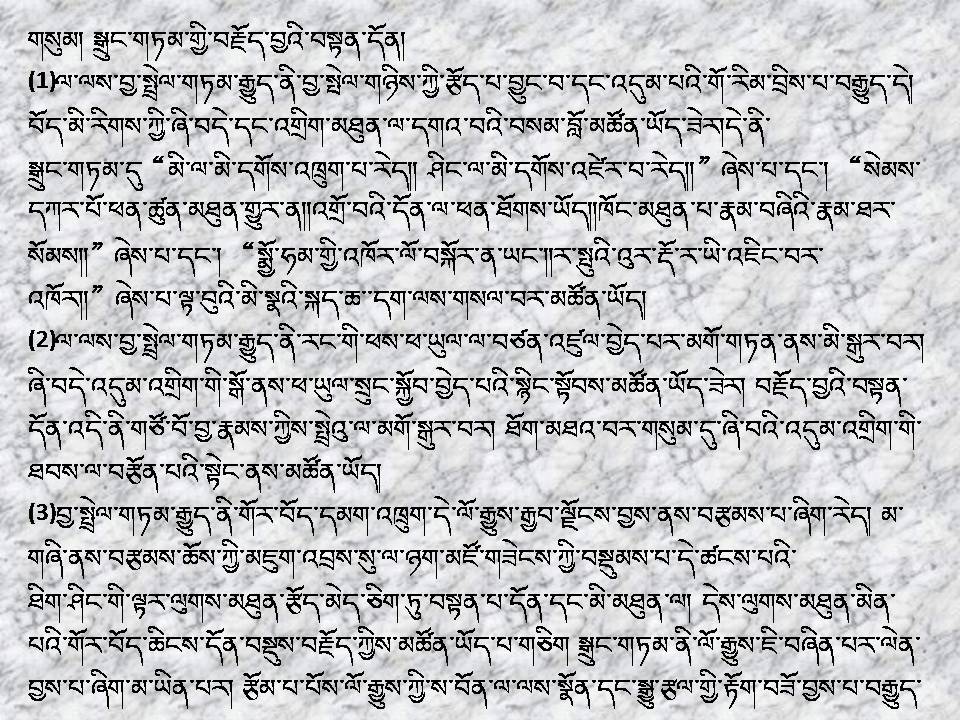 གསུམ། སྒྲུང་གཏམ་གྱི་བརྗོད་བྱའི་བསྟན་དོན།
(1)ལ་ལས་བྱ་སྤྲེལ་གཏམ་རྒྱུད་ནི་བྱ་སྤྲེལ་གཉིས་ཀྱི་རྩོད་པ་བྱུང་བ་དང་འདུམ་པའི་གོ་རིམ་བྲིས་པ་བརྒྱུད་དེ།
བོད་མི་རིགས་ཀྱི་ཞི་བདེ་དང་འགྲིག་མཐུན་ལ་དགའ་བའི་བསམ་བློ་མཚོན་ཡོད་ཟེར།དེ་ནི་
སྒྲུང་གཏམ་དུ “མི་ལ་མི་དགོས་འཁྲུག་པ་རེད།། ཤིང་ལ་མི་དགོས་འཛེར་པ་རེད།།” ཞེས་པ་དང་། “སེམས་
དཀར་པོ་ཕན་ཚུན་མཐུན་གྱུར་ན།།འགྲོ་བའི་དོན་ལ་ཕན་ཐོགས་ཡོད།།ཁོང་མཐུན་པ་རྣམ་བཞིའི་རྣམ་ཐར་
སོམས།།” ཞེས་པ་དང་། “སྨྱོ་ཧམ་གྱི་འཁོར་ལོ་བསྐོར་ན་ཡང་།།ར་སྤུའི་འུར་རྡོ་ར་ཡི་འཇིང་བར་
འཁོར།།” ཞེས་པ་ལྟ་བུའི་མི་སྣའི་སྐད་ཆ་དག་ལས་གསལ་བར་མཚོན་ཡོད།
(2)ལ་ལས་བྱ་སྤྲེལ་གཏམ་རྒྱུད་ནི་རང་གི་ཕས་ཕ་ཡུལ་ལ་བཙན་འཛུལ་བྱེད་པར་མགོ་གཏན་ནས་མི་སྒུར་བར།
ཞི་བདེ་འདུམ་འགྲིག་གི་སྒོ་ནས་ཕ་ཡུལ་སྲུང་སྐྱོབ་བྱེད་པའི་སྙིང་སྟོབས་མཚོན་ཡོད་ཟེར། བརྗོད་བྱའི་བསྟན་
དོན་འདི་ནི་གཙོ་བོ་བྱ་རྣམས་ཀྱིས་སྤྲེའུ་ལ་མགོ་སྒུར་བར། ཐོག་མཐའ་བར་གསུམ་དུ་ཞི་བའི་འདུམ་འགྲིག་གི་
ཐབས་ལ་བརྩོན་པའི་སྟེང་ནས་མཚོན་ཡོད།
(3)བྱ་སྤྲེལ་གཏམ་རྒྱུད་ནི་གོར་བོད་དམག་འཁྲུག་དེ་ལོ་རྒྱུས་རྒྱབ་ལྗོངས་བྱས་ནས་བརྩམས་པ་ཞིག་རེད། མ་
གཞི་ནས་བརྩམས་ཆོས་ཀྱི་མཇུག་འབྲས་སུ་ལ་ཉག་མཛོ་གཟེངས་ཀྱི་བསྡུམས་པ་དེ་ཚངས་པའི་
ཐིག་ཤིང་གི་ལྟར་ལུགས་མཐུན་རྩོད་མེད་ཅིག་ཏུ་བསྟན་པ་དོན་དང་མི་མཐུན་ལ། དེས་ལུགས་མཐུན་མིན་
པའི་གོར་བོད་ཆིངས་དོན་བསྔུས་བརྗོད་ཀྱིས་མཚོན་ཡོད་པ་གཅིག སྒྲུང་གཏམ་ནི་ལོ་རྒྱུས་ཇི་བཞིན་པར་ལེན་
བྱས་པ་ཞིག་མ་ཡིན་པར། རྩོམ་པ་པོས་ལོ་རྒྱུས་ཀྱི་ས་བོན་ལ་ལས་སྣོན་དང་སྒྱུ་རྩལ་གྱི་རྟོག་བཟོ་བྱས་པ་བརྒྱུད་